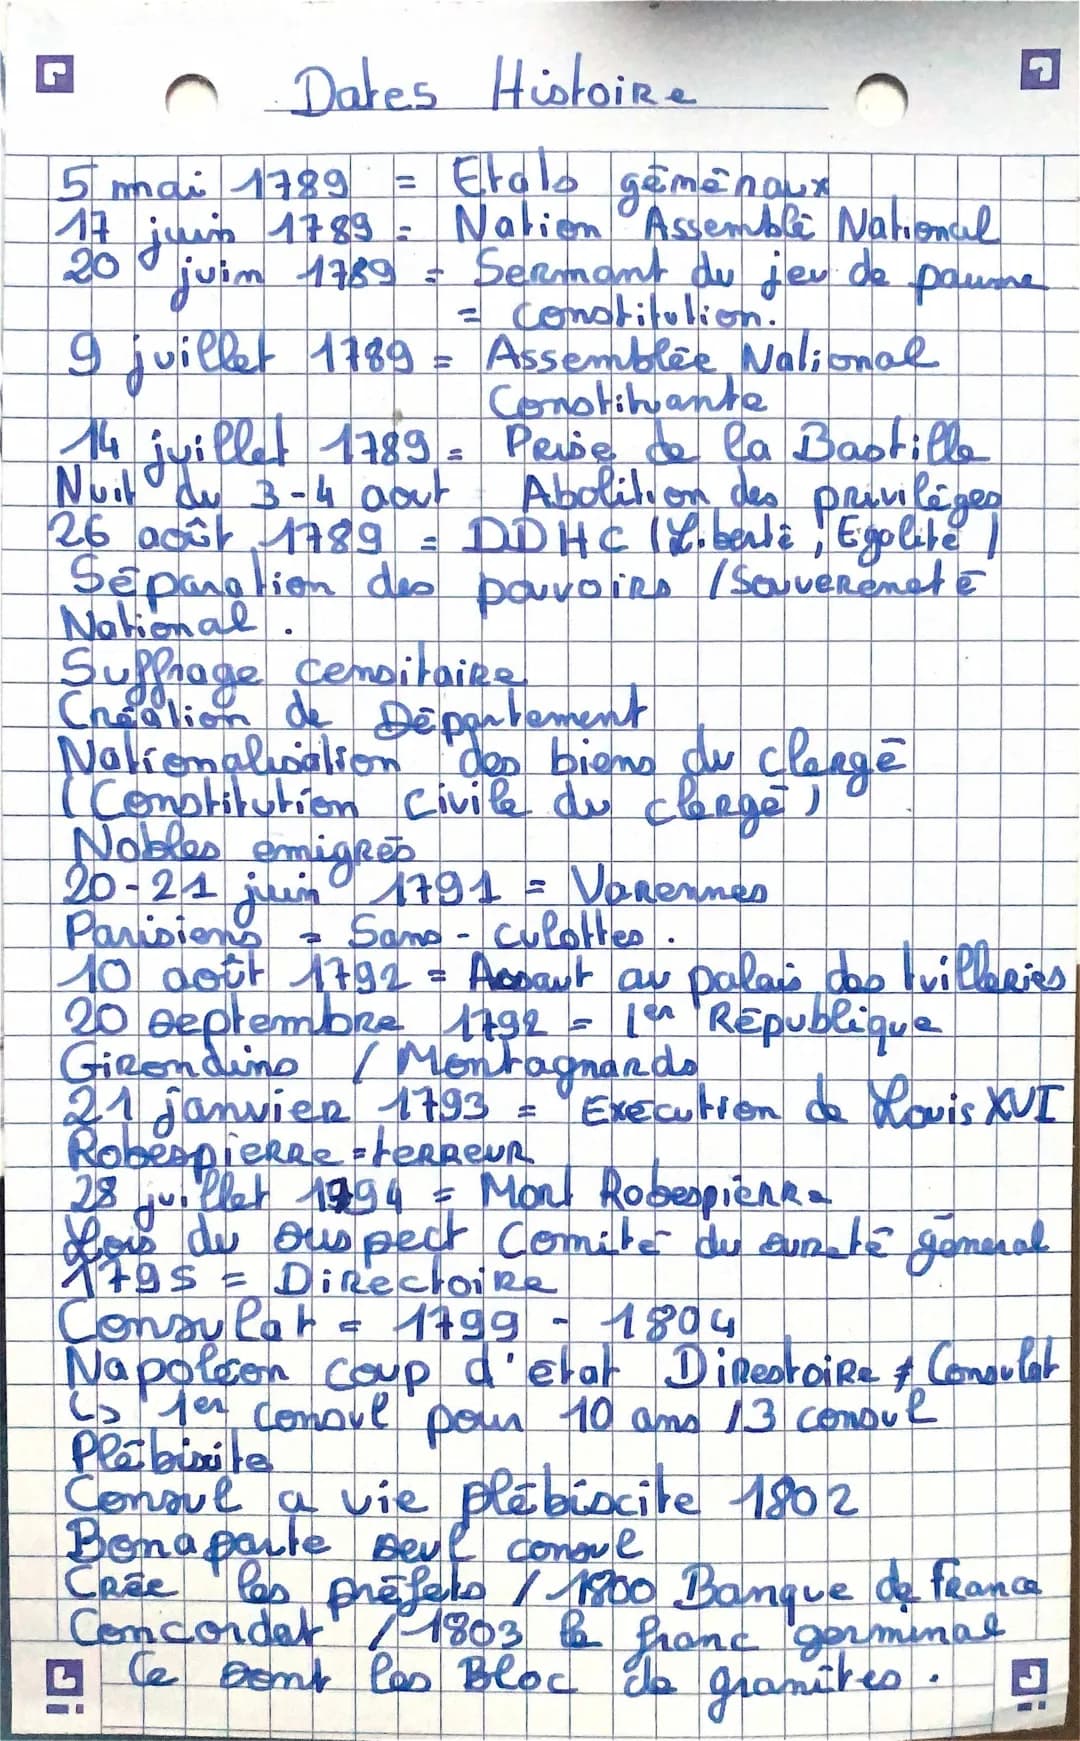 Dates Histoire
5 mai 1789 = Etats génénaux
17 juin 1789 = Nation Assemblé National
20 juin 1789 = Sermant du jeu de paume
= constitution.
9 juillet 1789 = Assemblée National
Constituante
14 juillet 1789 = Prise de la Bastille
Nuit du 3-4 aout Abolition des privilèges
26 août 1789 = DDHC (Liberté, Egolité /
Séparation des pouvoirs / Souvereneté
National.
Suffrage censitaire
Création de Département
Nationalisation des biens du clergé
(Constitution civile du clergé)
Nobles emigrés
20-21 juin 1791 = Varennes
Parisiens = Sans-culottes.
10 août 1792 = Assaut au palais des tuilleries
20 septembre 1792 = 1er République
Girondins / Montagnards
21 janvier 1793 = Exécution de Louis XVI
Robespierre = terreur
28 juillet 1794 = Mort Robespierre
Lois du suspect Comité du sureté géneral
1795 = Directoire
Consulat = 1799 - 1804
Napoléon coup d'état Direstoire ≠ Consulat
↳ 1er consul pour 10 ans / 3 consul
Plébisite
Consul a vie plébiscite 1802
Bonaparte seul consul
Crée les préfets / 1800 Banque de france
Concordat / 1803 le franc germinal
Ce sont les Bloc de granites.